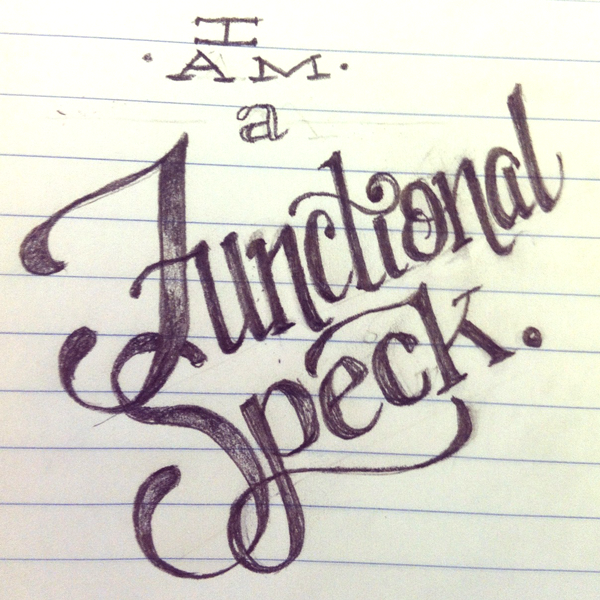 I
·AM·
a
Functional
Speck.